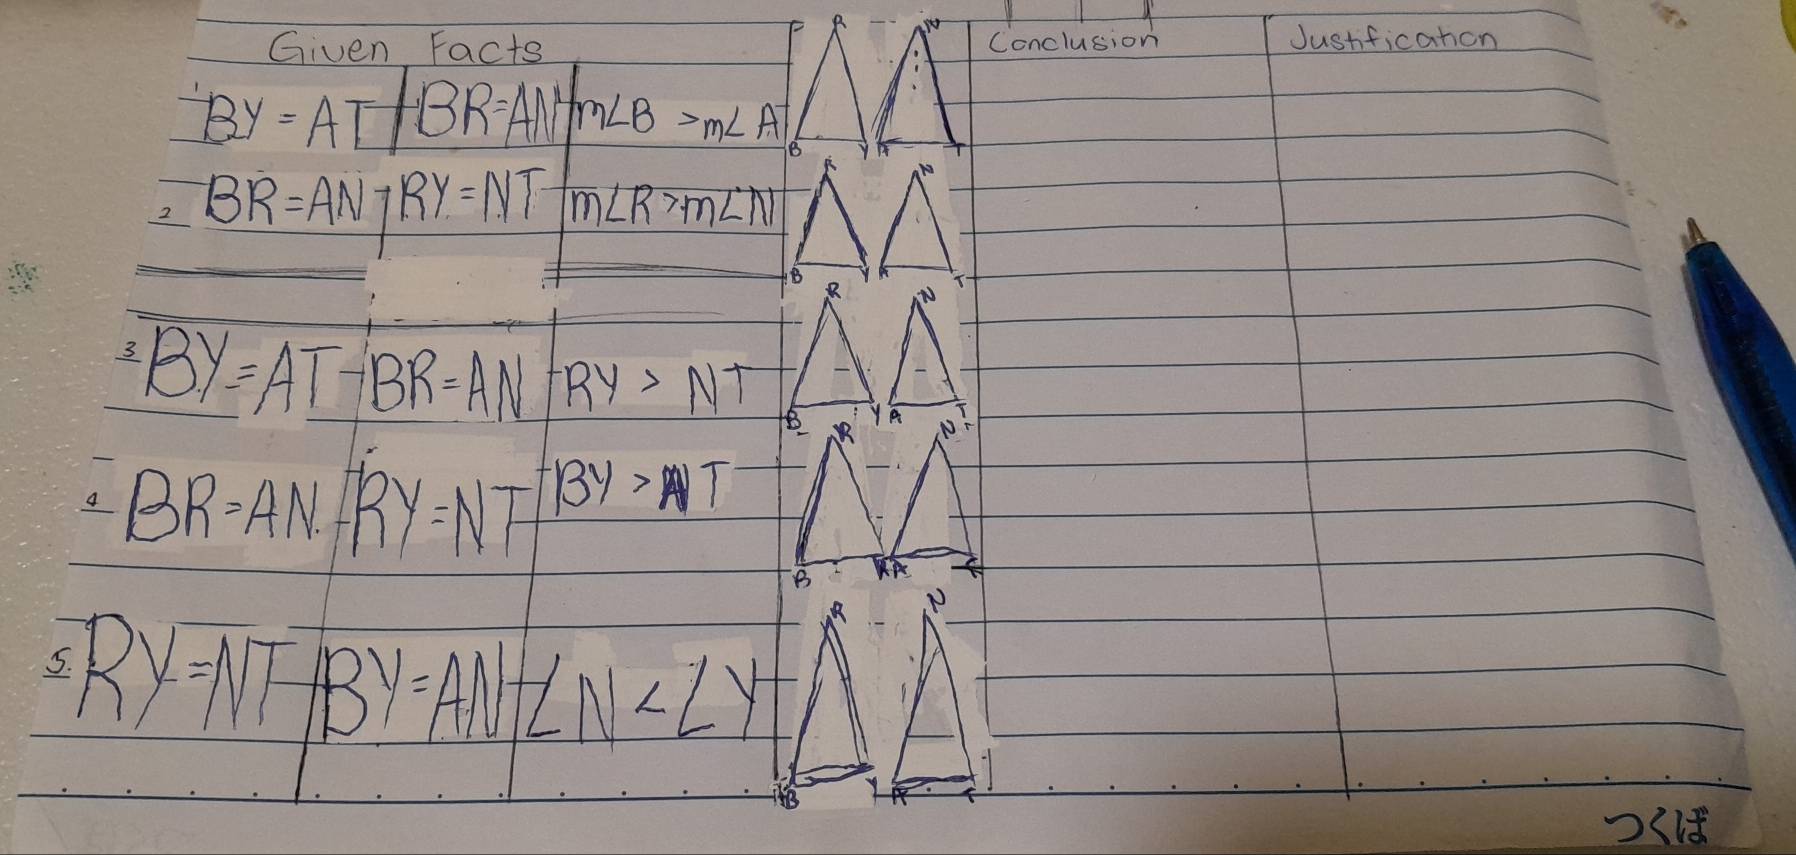 Given Facts Conclusion Justification
1 BY = AT BR=AN m∠B > m∠A
R N
B Y A T
2 BR=AN RY=NT m∠R>m∠N
R N
B Y A T
3 BY=AT BR=AN RY > NT
R N
B Y A T
4 BR=AN RY=NT BY > T
R N
B A
5. RY=NT BY=AN ∠N < ∠Y
R N
B Y A T
つくば